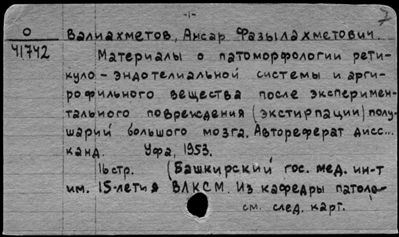 -1-
7
О Валиахметов, Ансар Фазылахметович.
41742 Материалы о патоморфологии рети-
куло-эндотелиальной системы и арги-
рофильного вещества после эксперимен-
тального повреждения (экстирпации) полу-
шарий большого мозга. Автореферат дисс...
канд. Уфа, 1953.
16 стр. (Башкирский гос. мед. ин-т
им. 15-летия ВЛКСМ. Из кафедры патоло-
см. след. карт.